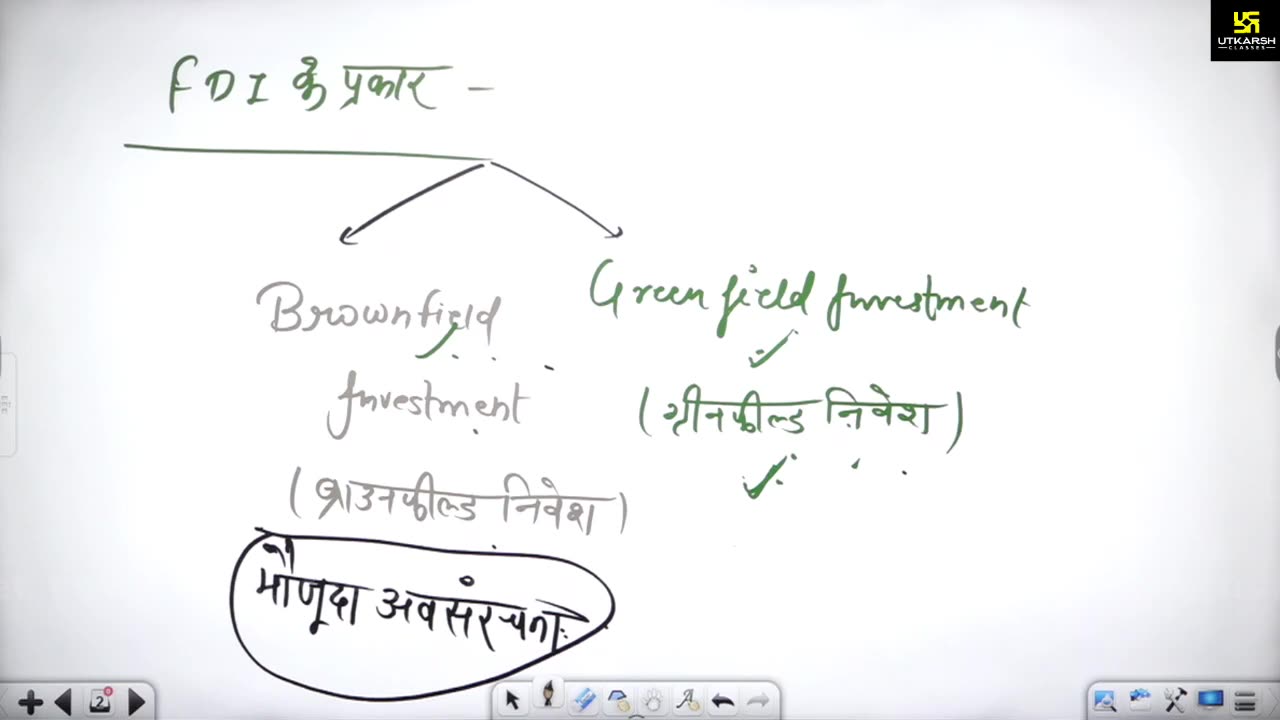 UTKARSH
CLASSES
FDI के प्रकार -
Brownfield
Investment
(ब्राउनफील्ड निवेश)
मौजूदा अवसंरचना
Greenfield Investment
(ग्रीनफील्ड निवेश)
2